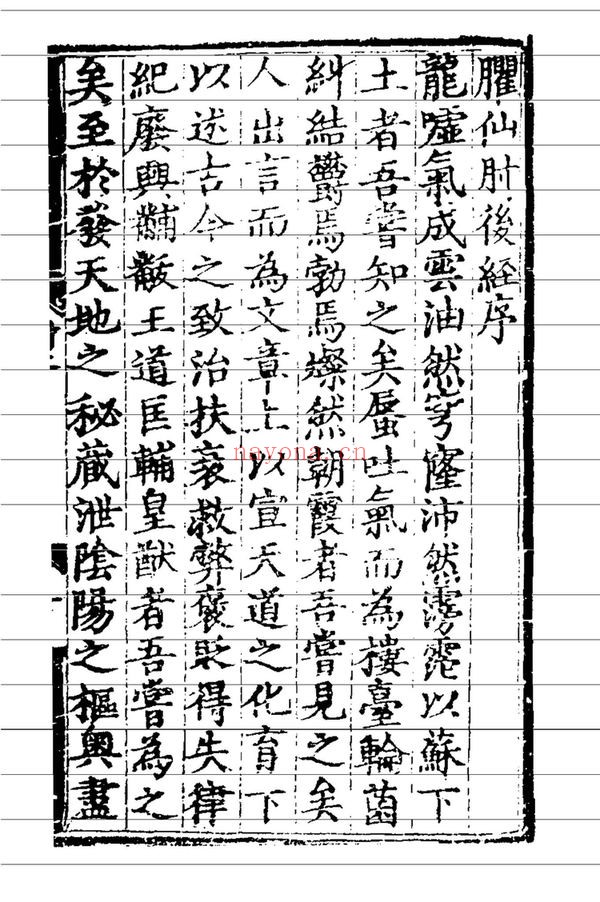 臞仙肘後經序
龍嘘氣成雲油然穹窿沛然滂霈以蘇下
土者吾嘗知之矣蜃吐氣而為樓臺輪菌
糾結欝焉勃焉燦然朝霞者吾嘗見之矣
人出言而為文章上以宣天道之化育下
以述古今之致治扶衰救弊褒貶得失律
紀廢興黼黻王道匡輔皇猷者吾嘗為之
矣至於發天地之秘藏泄陰陽之樞奧盡
nayona.cn